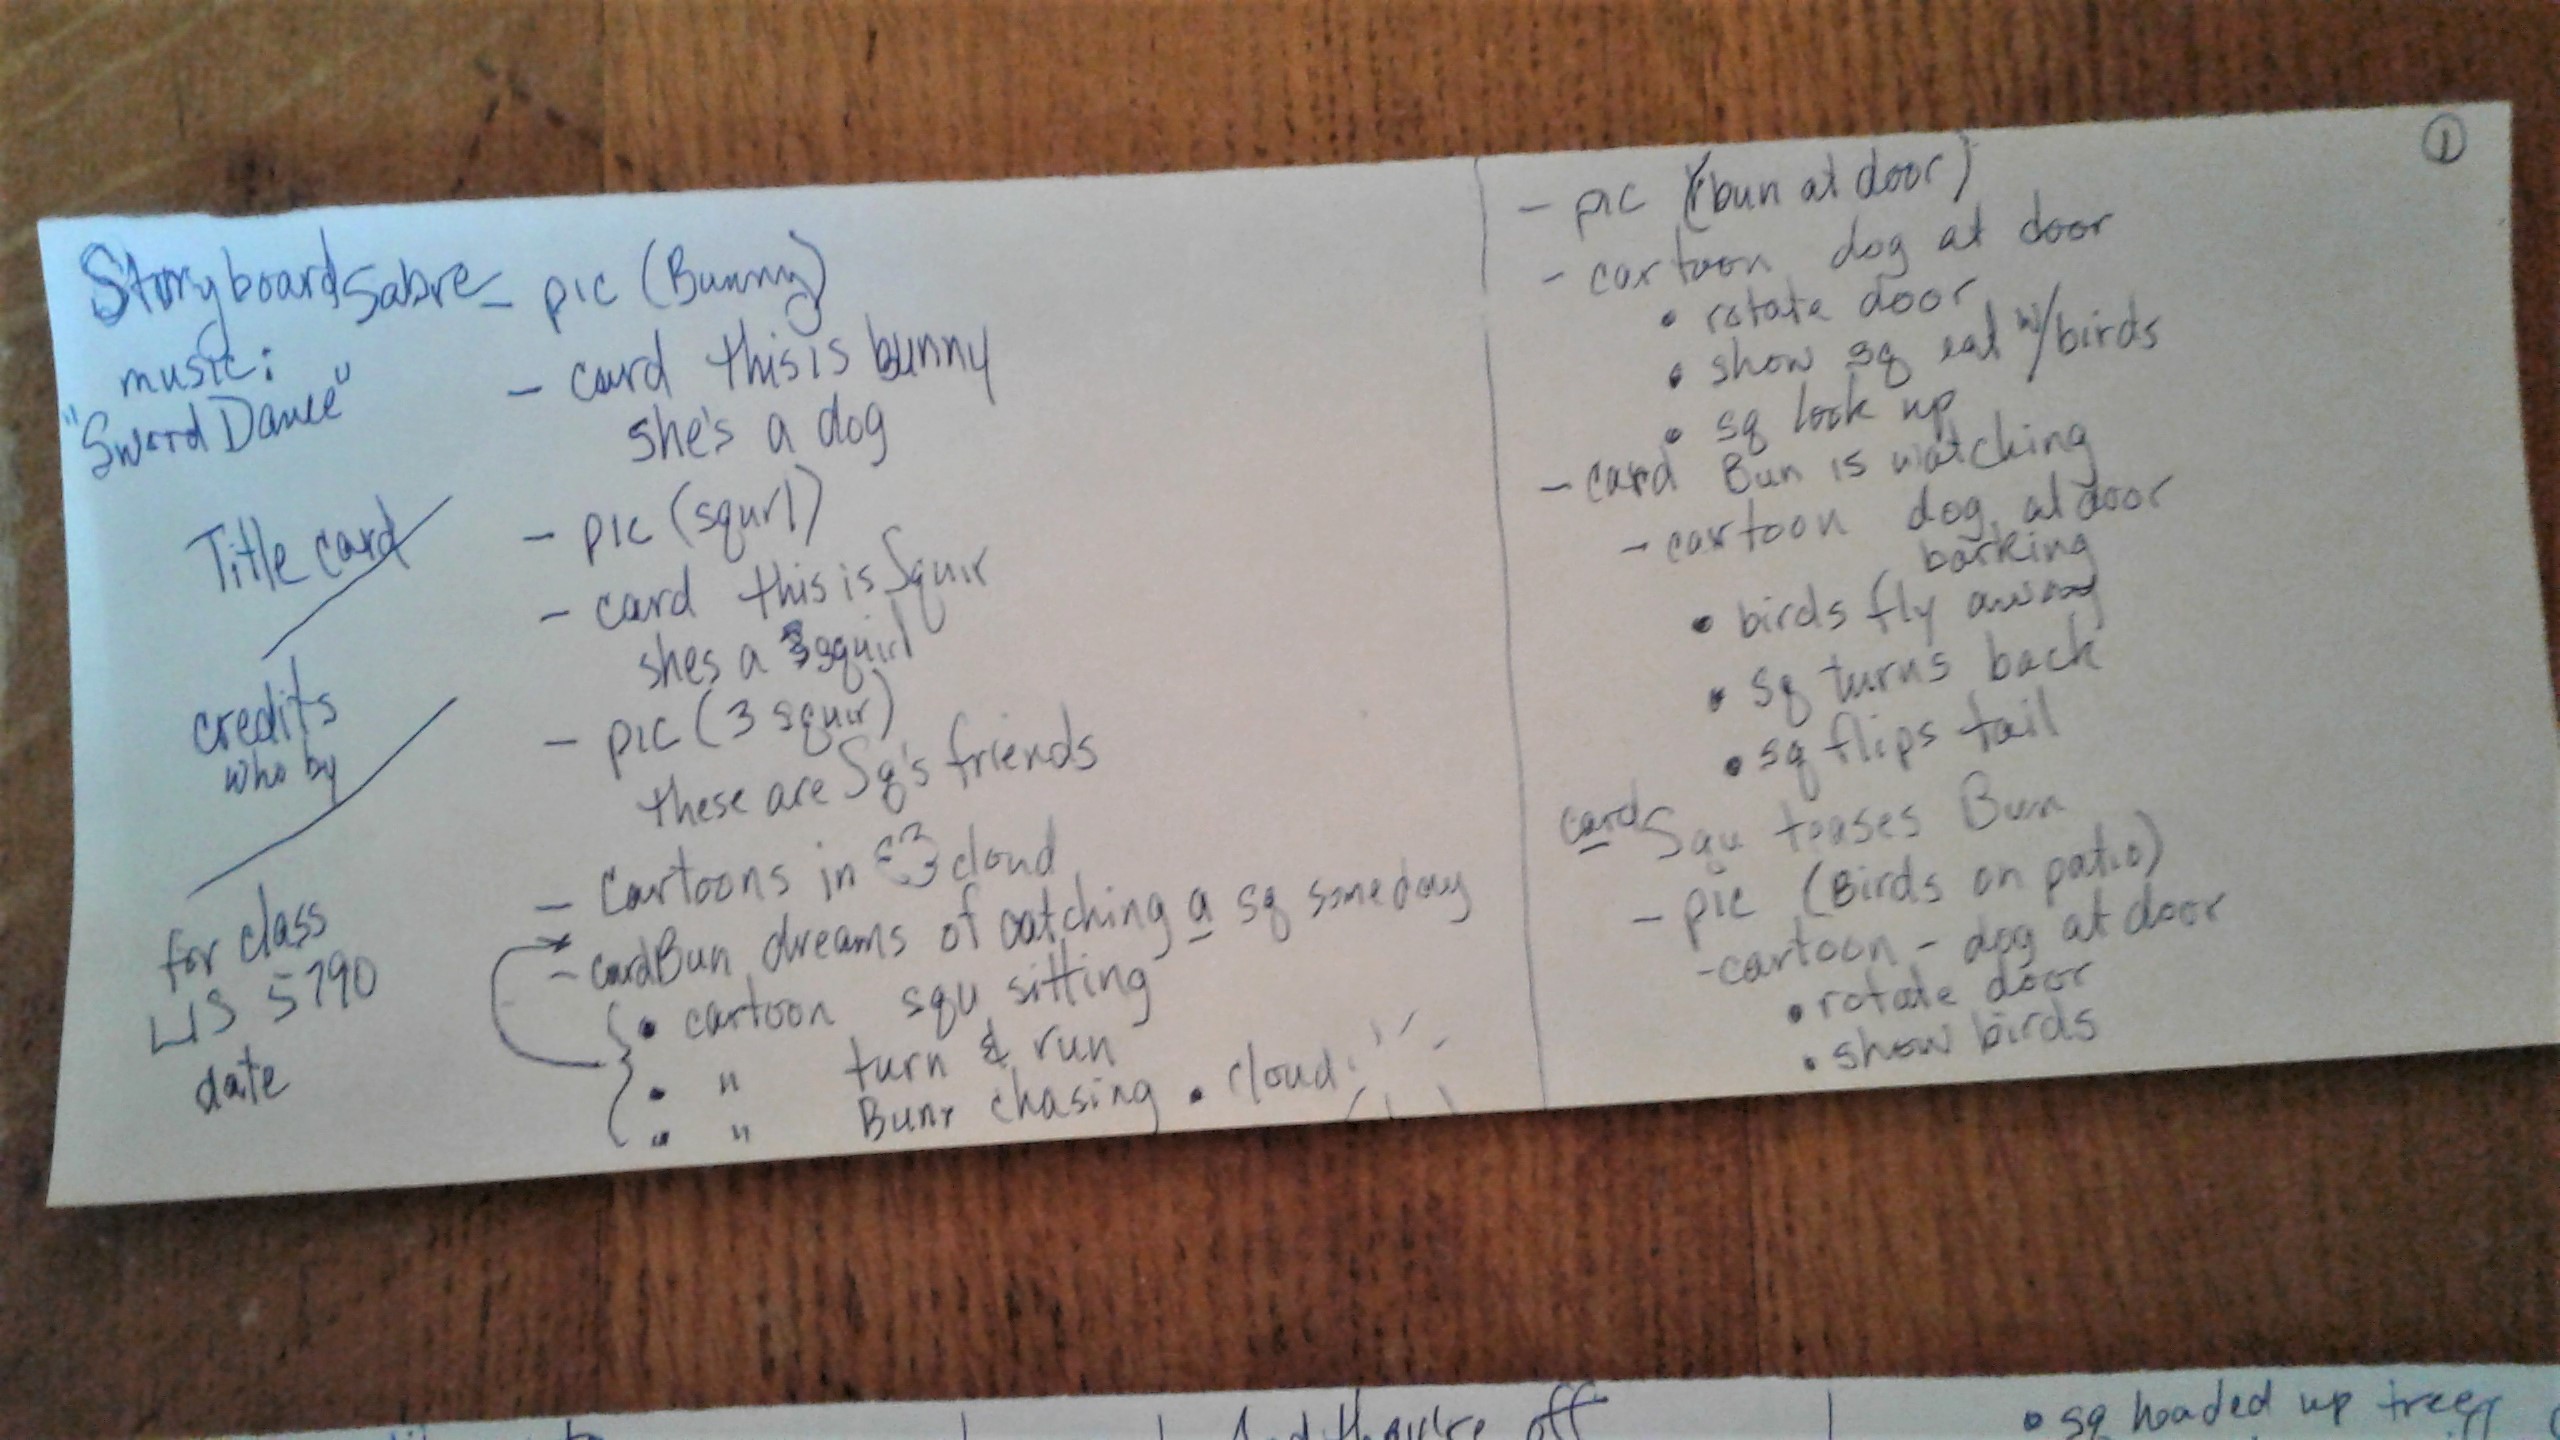 Storyboard Sabre
music:
"Sword Dance"
Title card
credits
who by
for class
LIS 5790
date
- pic (Bunny)
- card this is bunny
she's a dog
- pic (squrl)
- card this is Squir
shes a squirl
- pic (3 squir)
these are Sq's friends
- Cartoons in cloud
- card Bun dreams of catching a sq someday
• cartoon squ sitting
• " turn & run
• " Buny chasing • cloud
①
- pic (bun at door)
- cartoon dog at door
• rotate door
• show sq eat w/birds
• sq look up
- card Bun is watching
- cartoon dog at door
barking
• birds fly away
• sq turns back
• sq flips tail
card Squ teases Bun
- pic (Birds on patio)
- cartoon - dog at door
• rotate door
• show birds
And they're off
• sq headed up tree